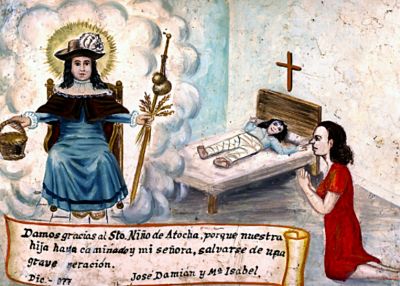 Damos gracias al Sto. Niño de Atocha, porque nuestra
hija hasta caminado y mi señora, salvarse de una
grave peración.
Dic.- 977 Jose Damian y Mª Isabel.